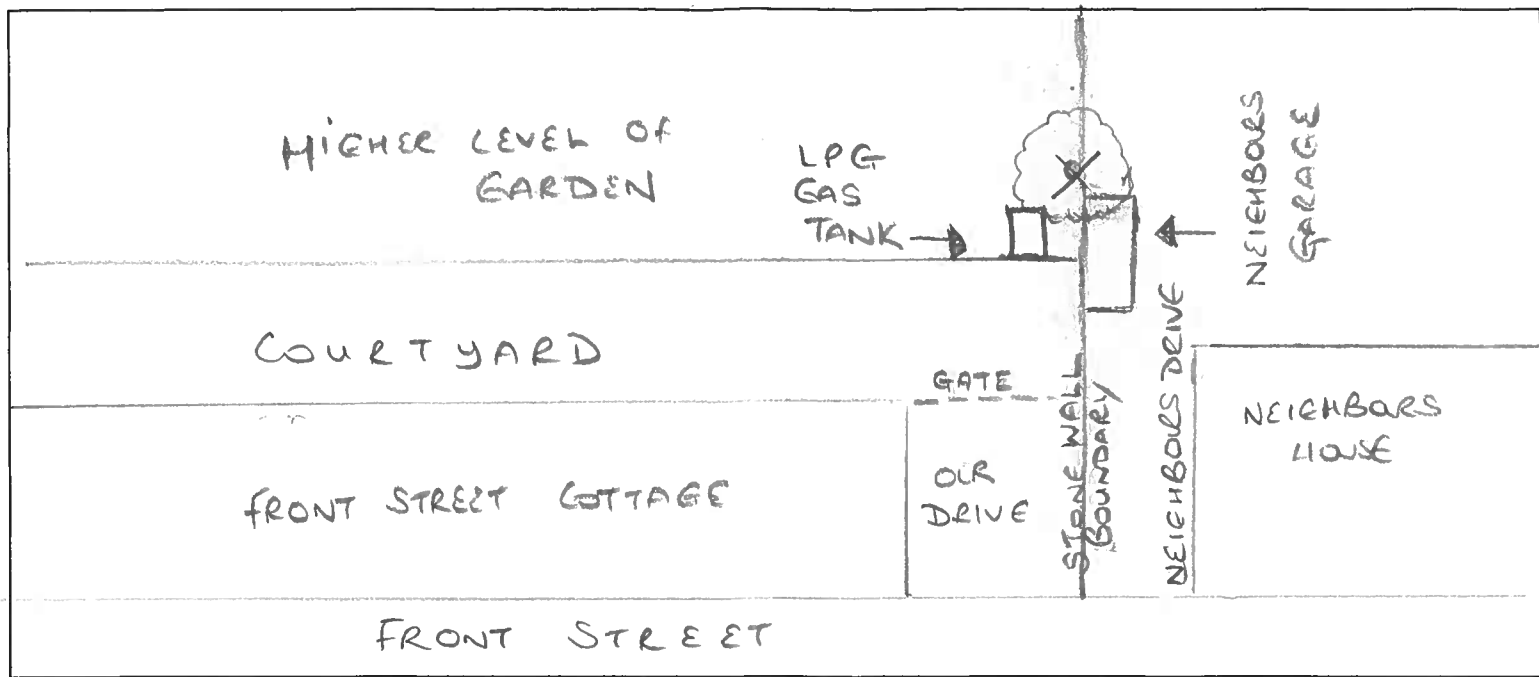 HIGHER LEVEL OF
GARDEN
LPG
GAS
TANK
NEIGHBORS
GARAGE
COURTYARD
GATE
STONE WALL
BOUNDARY
NEIGHBORS DRIVE
NEIGHBORS
HOUSE
FRONT STREET COTTAGE
OUR
DRIVE
FRONT STREET